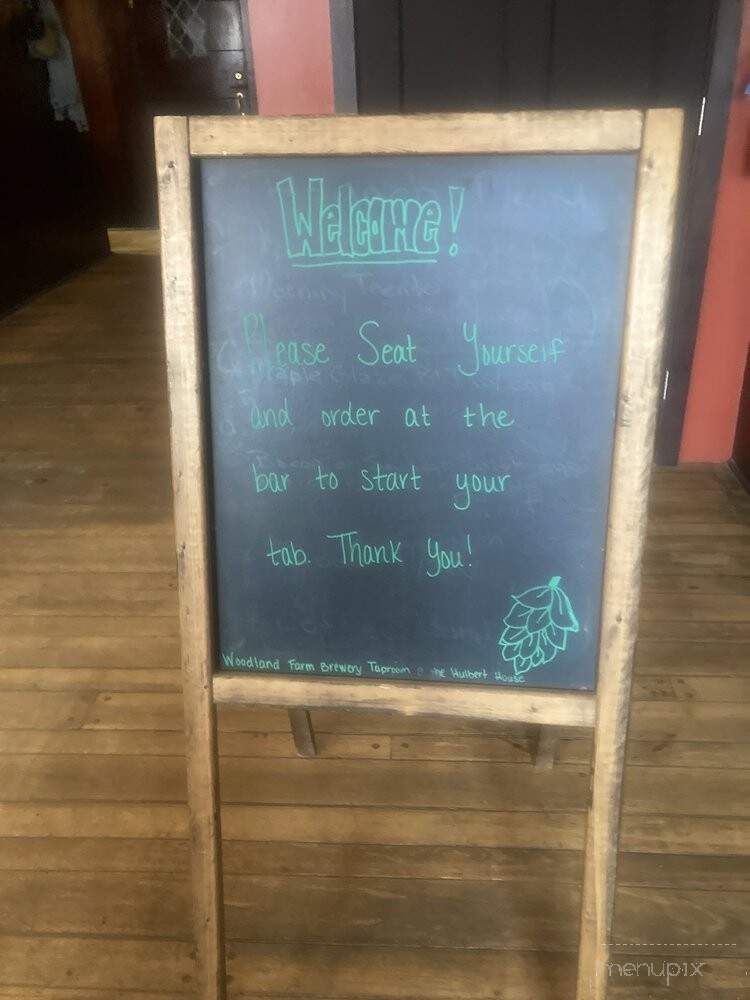 Welcome!
Please Seat Yourself
and order at the
bar to start your
tab. Thank you!
Woodland Farm Brewery Taproom @ the Hulbert House
menupix